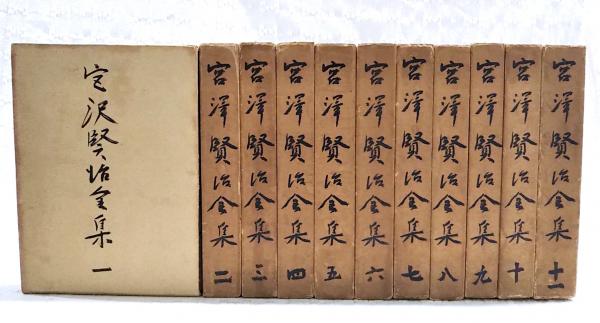 宮沢賢治全集 一
宮澤賢治全集 二
宮澤賢治全集 三
宮澤賢治全集 四
宮澤賢治全集 五
宮澤賢治全集 六
宮澤賢治全集 七
宮澤賢治全集 八
宮澤賢治全集 九
宮澤賢治全集 十
宮澤賢治全集 十一